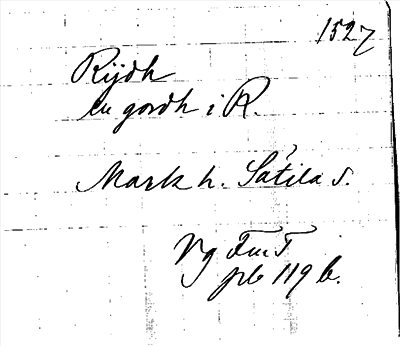 1527
Rijdh
en gordh i R.
Mark h. Sätila s.
Vg FmT
p1b 119 b.